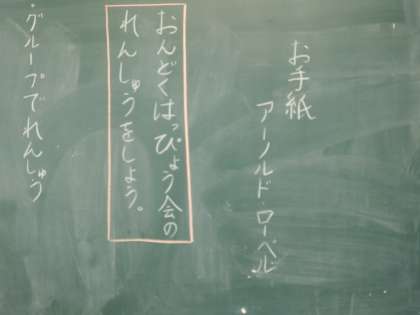 お手紙
アーノルド・ローベル
おんどくはっぴょう会の
れんしゅうをしよう。
・グループでれんしゅう